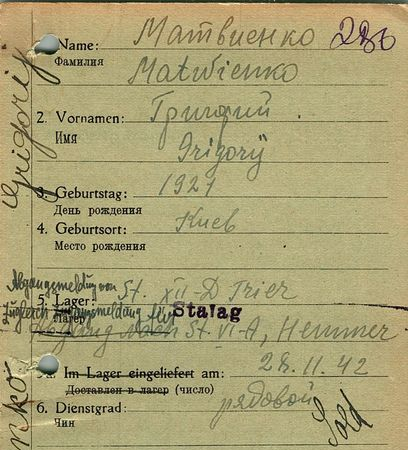 Name: Матвиенко 286
Фамилия
Matwienko
2. Vornamen: Григорий
Имя
Grigorij
3. Geburtstag: 1921
День рождения
4. Geburtsort: Киев
Место рождения
Abgangsmeldung von
5. Lager: St. XII-D Trier
Лагерь
Zugleich Zugangsmeldung für Stalag
Abgang nach St. VI-A, Hemmer
5a. Im Lager eingeliefert am: 28.11.42
Доставлен в лагер (число)
6. Dienstgrad: рядовой
Чин
Sold
Grigorij
nko